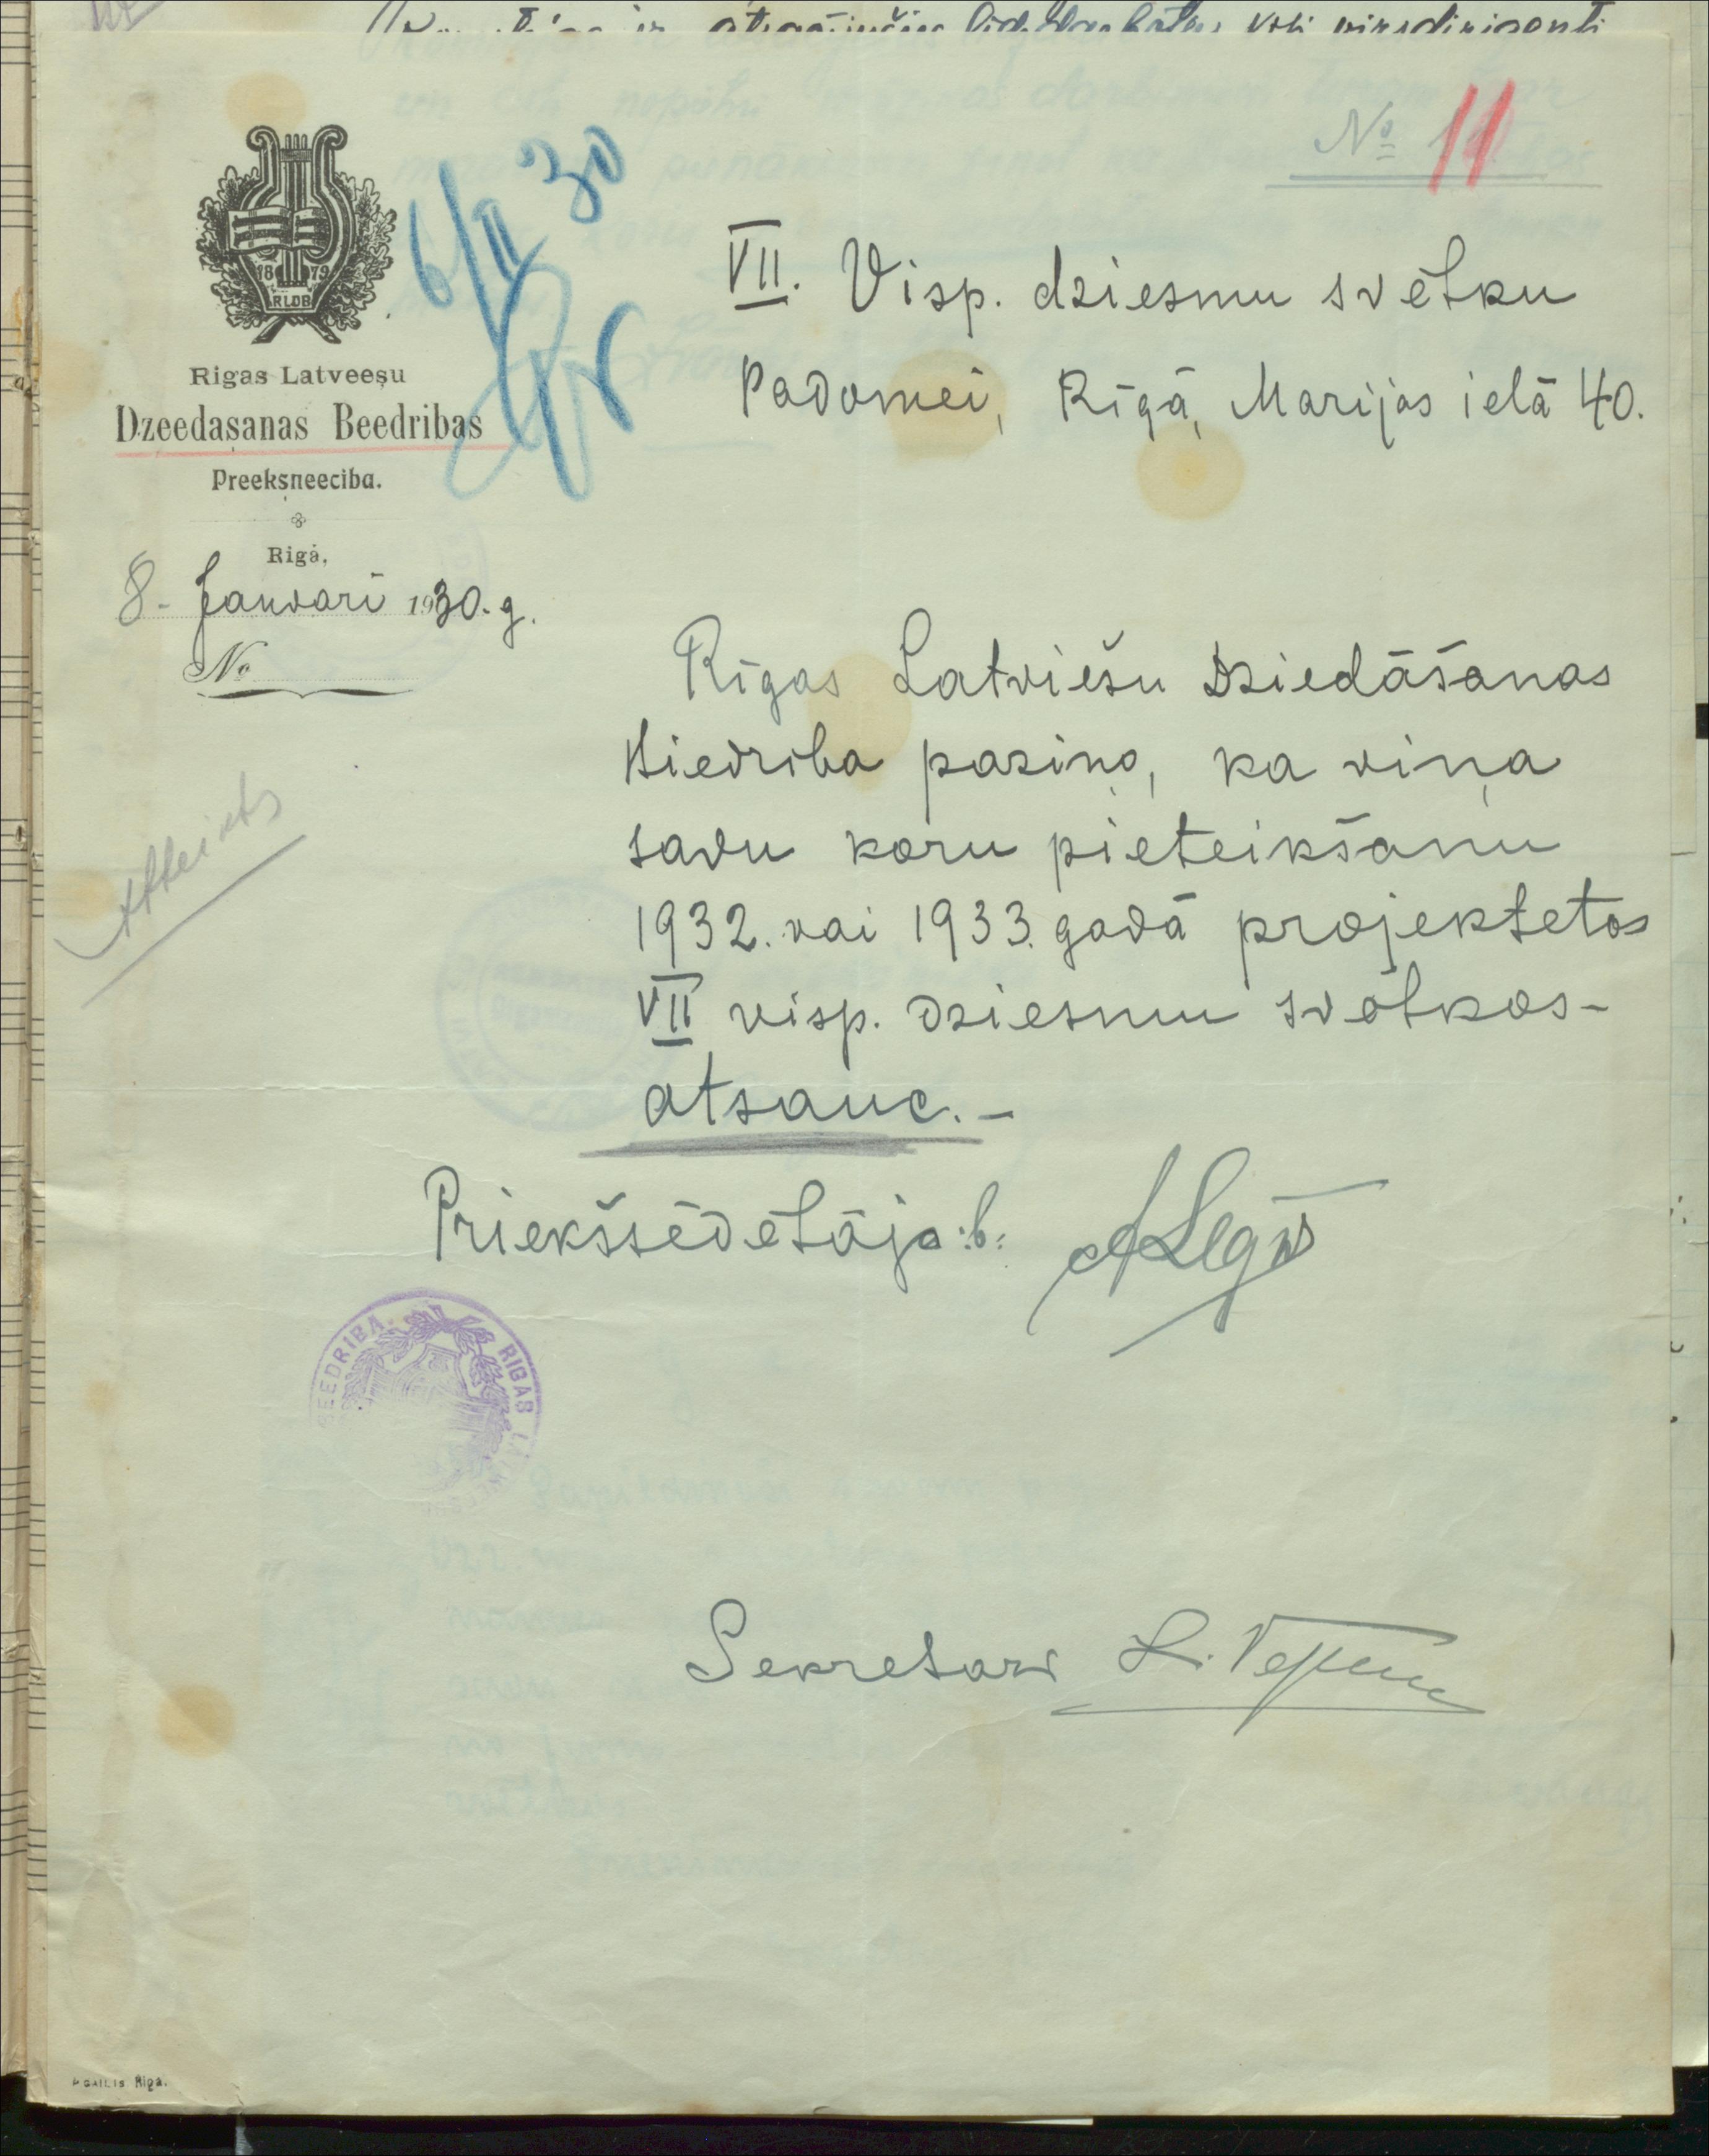 № 11
6/II 30
1879
RLDB
Rigas Latveeşu
Dzeedaşanas Beedribas
Preeksneeciba.
Rigà,
8. Janvarī 1930. g.
No
VII. Visp. dziesmu svētku
Padomei, Rīgā, Marijas ielā 40.
Rīgas Latviešu Dziedāšanas
Biedrība paziņo, ka viņa
savu koru pieteikšanu
1932. vai 1933. gadā projektetos
VII visp. dziesmu svētkos -
atsauc. -
Atteikts
Priekšsēdētāja :b:
BEEDRIBA. RIGAS
Sekretars
P GAILIS Riga.